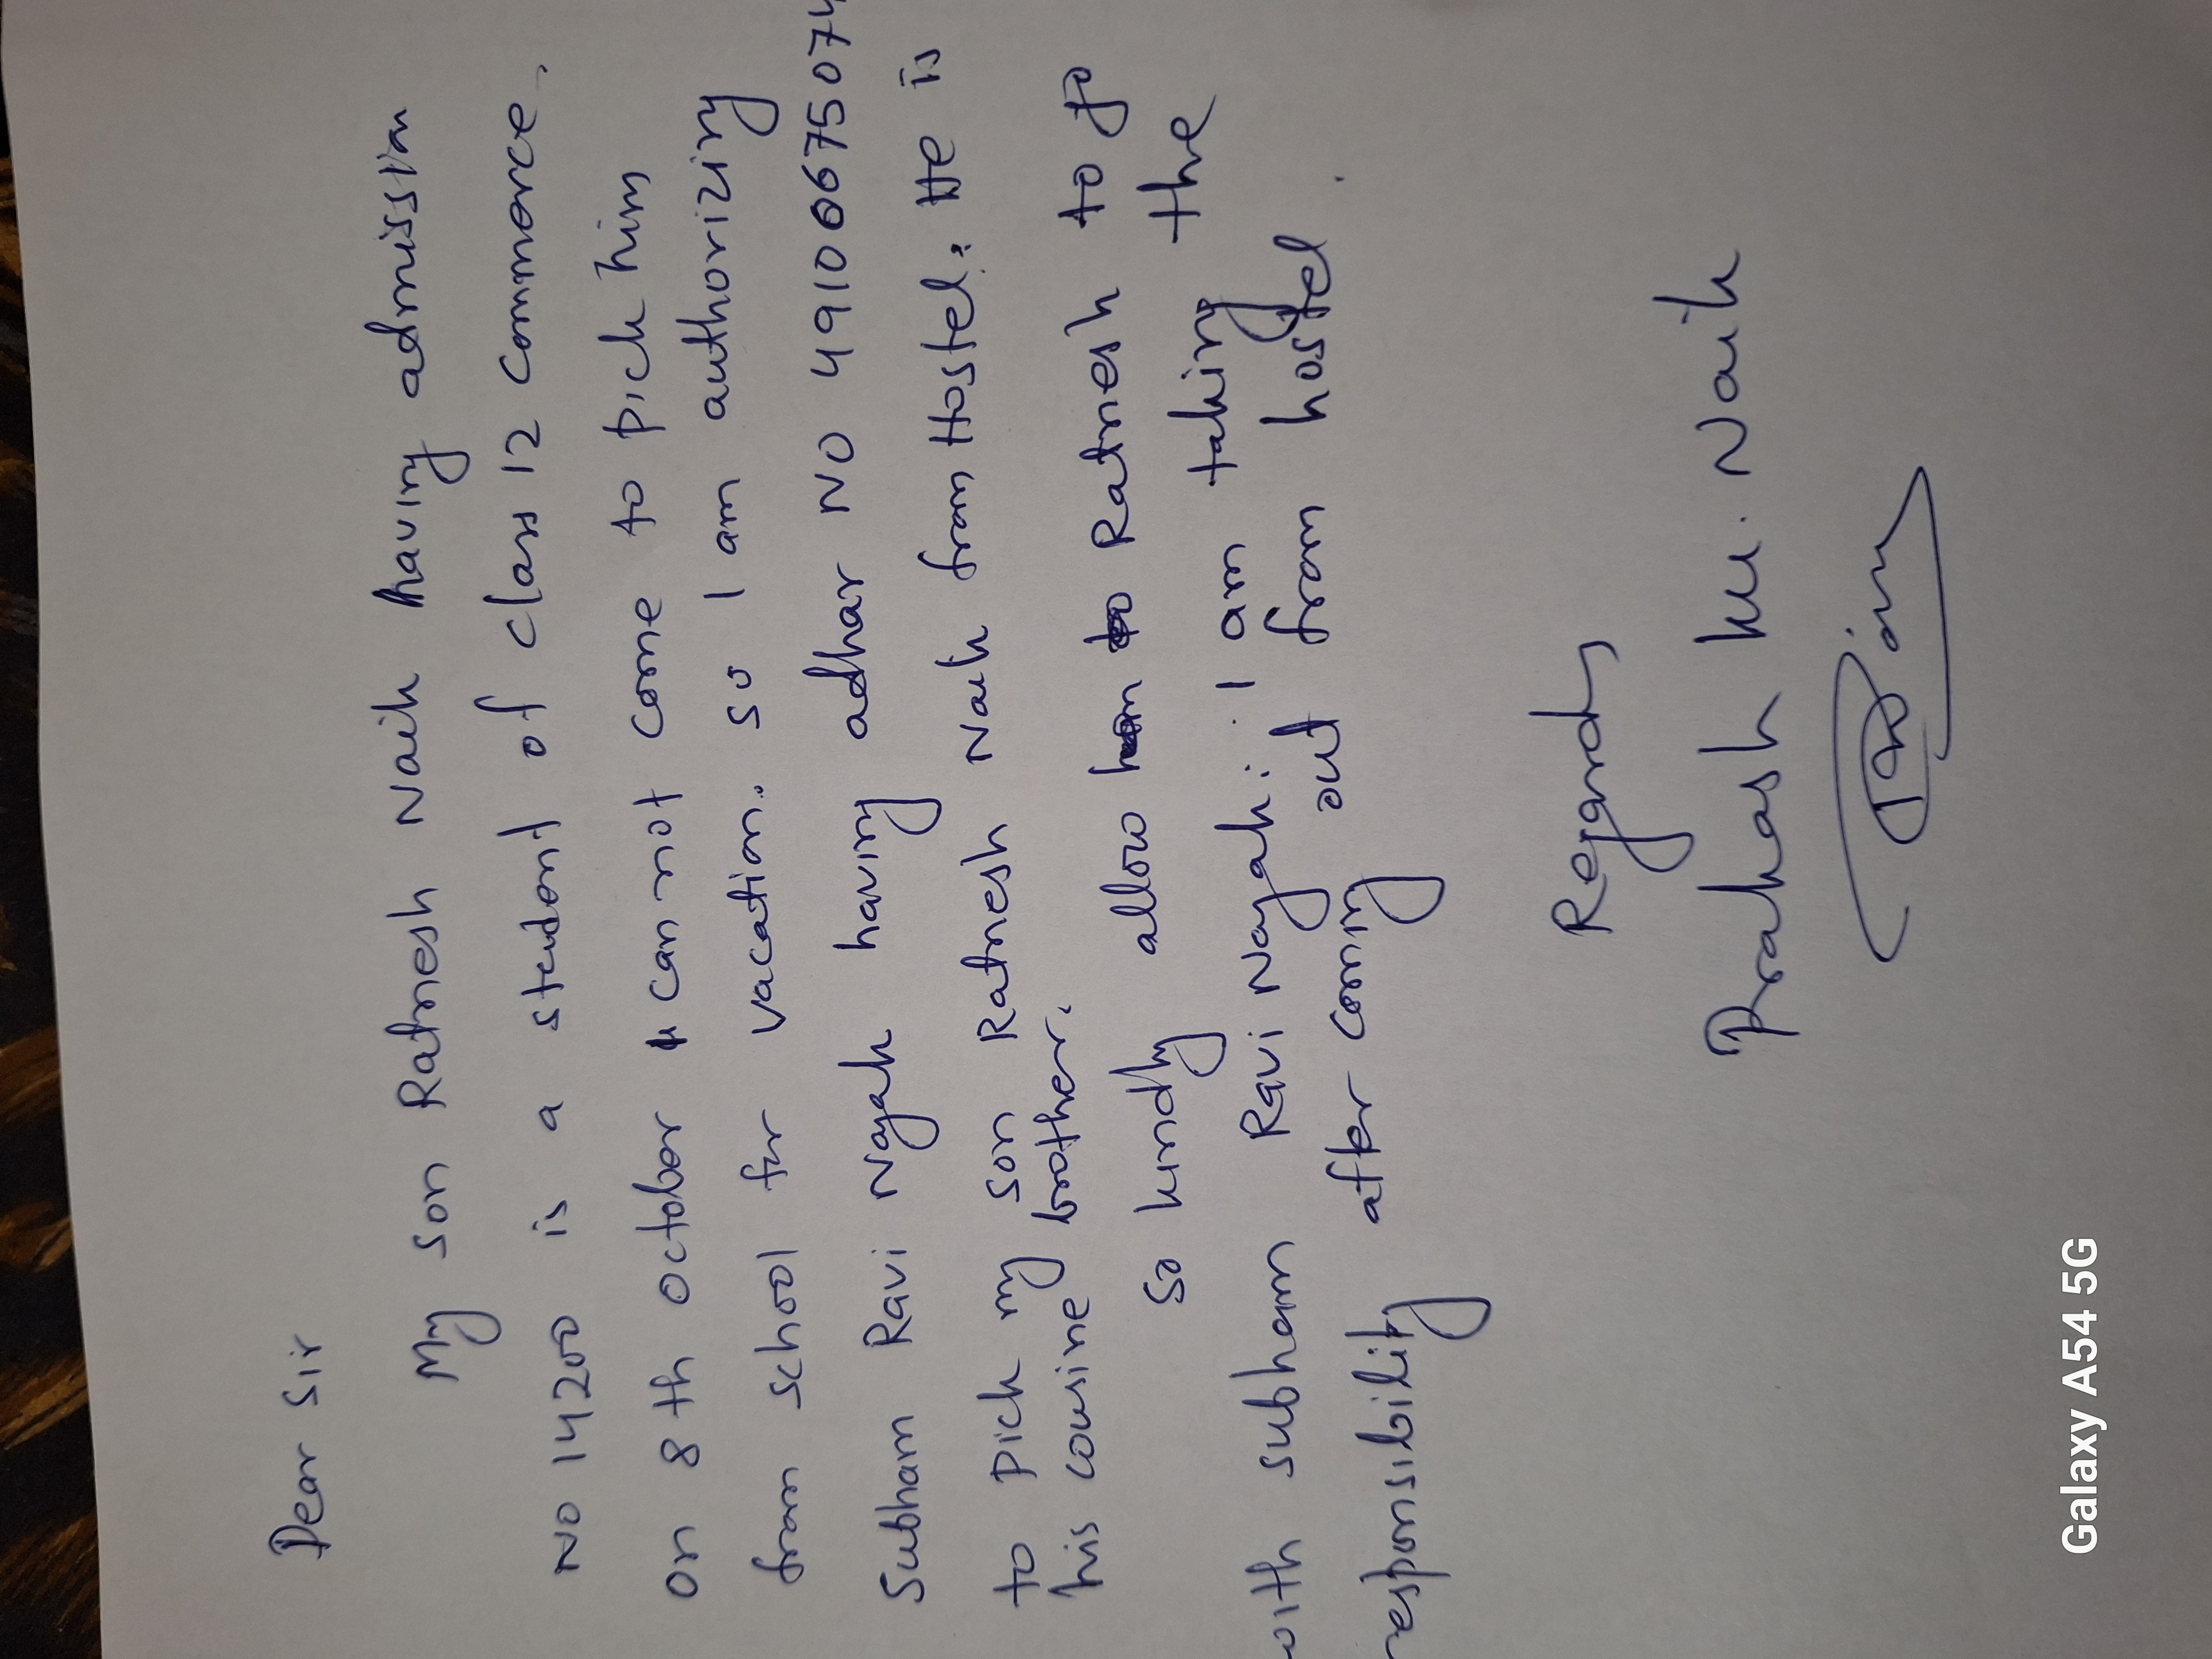 Dear Sir
My son Ratnesh Naik having admission
No 14200 is a student of class 12 commerce.
On 8 th October I can not come to pick him
from school for vacation. so I am authorizing
Subham Ravi Nayak having adhar NO 491066750
to pick my son Ratnesh Naik from Hostel. He is
his cousine brother.
so kindly allow to Ratnesh to go
with subham Ravi Nayak. I am taking the
responsibility after coming out from hostel.
Regards
Prakash Ku. Naik
Galaxy A54 5G